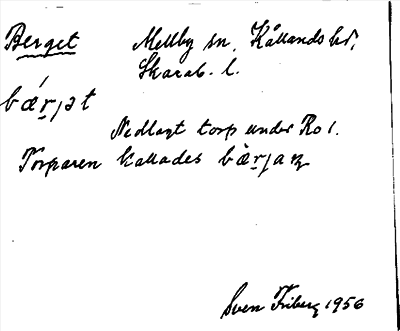 Berget Mellby sn, Kållands hd,
Skarab. l.
bǽr̠jət
Nedlagt torp under Ro 1.
Torparen kallades bær̠jaɳ
Sven Friberg 1956